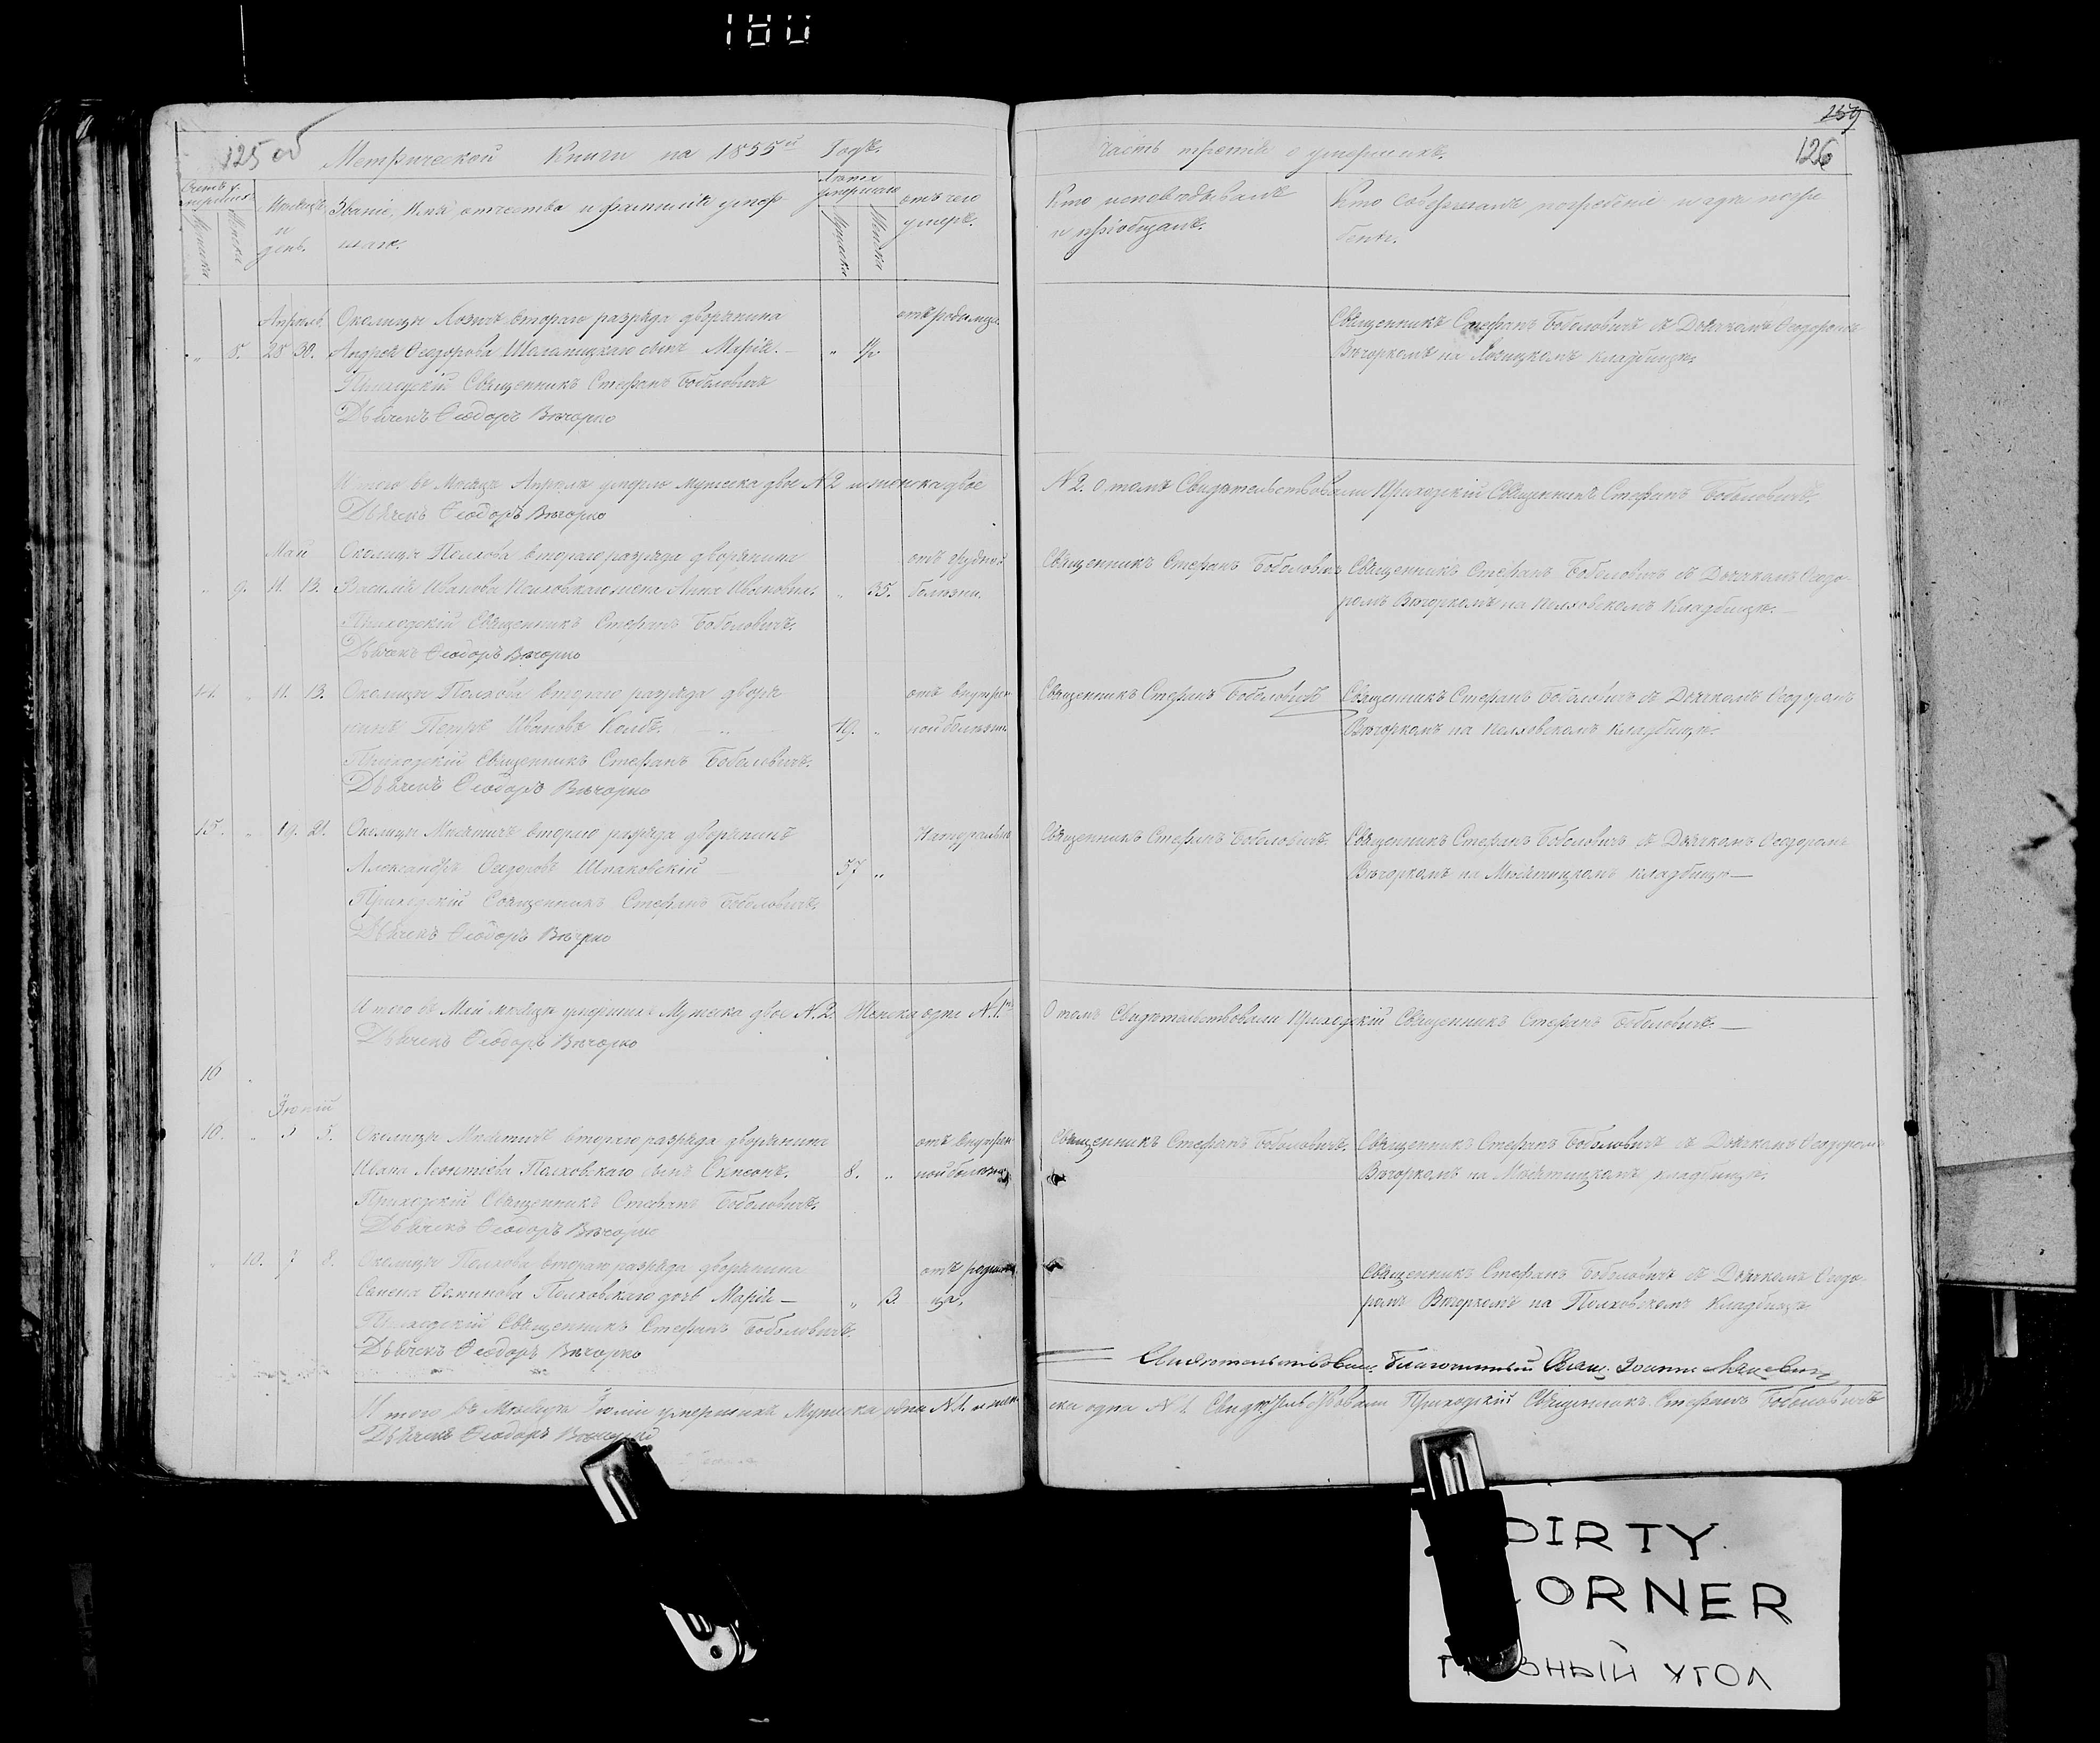 180
125 об
Метрической Книги на 1855й Годъ.
Счетъ умершихъ
Мужеска
Женска
Мѣсяцъ и день.
Званіе, Имя, отчество и фамилія умер-
шаго.
Лѣта умершаго
Мужеска
Женска
отъ чего
умеръ.
Апрѣль
Околицы Лозичъ втораго разряда дворянина
отъ родимца
„ 8. 28 30. Андрея Ѳеодорова сынъ Марія. „ ½
Приходскій Священникъ Стефанъ Боболовичъ
Дьячекъ Ѳеодоръ Вѣчорко
И того въ Мѣсяцѣ Апрѣлѣ умерло мужеска двое N 2 и женска двое
Дьячекъ Ѳеодоръ Вѣчорко
Май
Околицы Полхова втораго разряда дворянина
отъ грудной
„ 9. 11. 13. Василія Иванова Полховскаго жена Анна Иванова. „ 35. болѣзни.
Приходскій Священникъ Стефанъ Боболовичъ.
Дьячекъ Ѳеодоръ Вѣчорко
14. „ 11. 13. Околицы Полхова втораго разряда дворя
отъ внутрен
нинъ Петръ Ивановъ „ ной болѣзни
Приходскій Священникъ Стефанъ Боболовичъ.
Дьячекъ Ѳеодоръ Вѣчорко
15. „ 19. 21. Околицы Мнятичъ втораго разряда дворянинъ
Натуральн
Александръ Шпаковскій 57 „
Приходскій Священникъ Стефанъ Боболовичъ.
Дьячекъ Ѳеодоръ Вѣчорко
И того въ Маѣ мѣсяцѣ умершихъ Мужеска двое N. 2. Женска одна N. 1.
Дьячекъ Ѳеодоръ Вѣчорко
16
Іюній
„ 5. Околицы Мнятичъ втораго разряда дворянина
отъ внутрен
Ивана Леонтіева Полховскаго сынъ Симеонъ. 8. „ ной болѣзни
Приходскій Священникъ Стефанъ Боболовичъ.
Дьячекъ Ѳеодоръ Вѣчорко
„ 10. 8. Околицы Полхова втораго разряда дворянина
отъ родим
Полховскаго дочь Марія — „ 3. ца.
Приходскій Священникъ Стефанъ Боболовичъ.
Дьячекъ Ѳеодоръ Вѣчорко
И того въ Мѣсяцѣ Іюніи умершихъ Мужеска одна N 1. и жен
Дьячекъ Ѳеодоръ Вѣчорко
126
Часть третія о умершихъ.
Кто исповѣдывалъ
и пріобщалъ.
Кто Совершалъ погребеніе и гдѣ погре
бенъ.
Священникъ Стефанъ Боболовичъ съ Дьячкомъ Ѳеодоромъ
Вѣчоркомъ на Лозицкомъ кладбищѣ.
N 2. о томъ Свидѣтельствовали Приходскій Священникъ Стефанъ Боболовичъ.
Священникъ Стефанъ Боболовичъ
Священникъ Стефанъ Боболовичъ съ Дьячкомъ Ѳеодо-
ромъ Вѣчоркомъ на Полховскомъ Кладбищѣ. —
Священникъ Стефанъ Боболовичъ
Священникъ Стефанъ Боболовичъ съ Дьячкомъ Ѳеодоромъ
Вѣчоркомъ на Полховскомъ кладбищѣ
Священникъ Стефанъ Боболовичъ.
Священникъ Стефанъ Боболовичъ съ Дьячкомъ Ѳеодоромъ
Вѣчоркомъ на Мнятицкомъ кладбищѣ —
О томъ Свидѣтельствовали Приходскій Священникъ Стефанъ Боболовичъ. —
Священникъ Стефанъ Боболовичъ.
Священникъ Стефанъ Боболовичъ съ Дьячкомъ Ѳеодоромъ
Вѣчоркомъ на Мнятицкомъ кладбищѣ.
Священникъ Стефанъ Боболовичъ съ Дьячкомъ Ѳеодо-
ромъ Вѣчоркомъ на Полховскомъ Кладбищѣ
Свидѣтельствовалъ Благочинный Свящ. Іоаннъ
ска одна N 1. Свидѣтельствовали Приходскій Священникъ Стефанъ Боболовичъ
DIRTY
CORNER
ГРЯЗНЫЙ УГОЛ